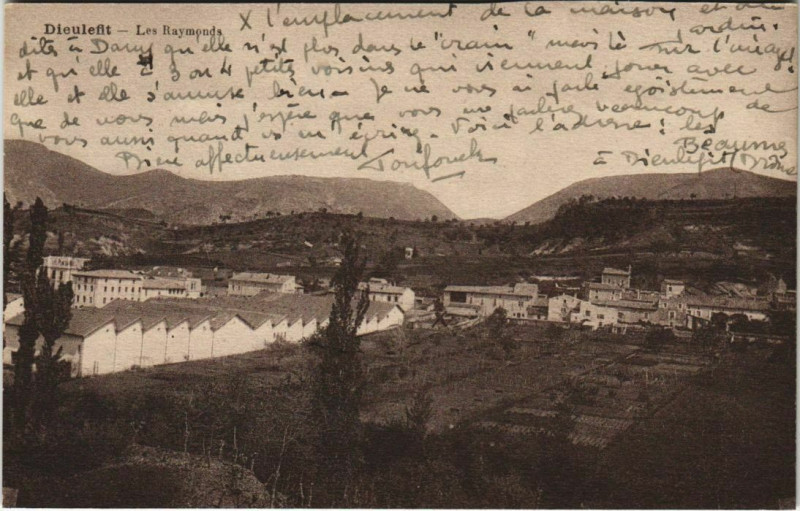 Dieulefit — Les Raymonds
X l'emplacement de la maison et du jardin.
dites à Dany qu'elle n'est plus dans le "vrain" mais sur l'image
et qu'elle a 3 ou 4 petits voisins qui viennent jouer avec
elle et elle s'amuse bien - Je ne vous ai parlé égoïstement
que de nous mais j'espère que vous me parlerez beaucoup de
vous aussi quand vs m'écrirez - Voici l'adresse : les Beaumes
à Dieulefit (Drôme)
Bien affectueusement